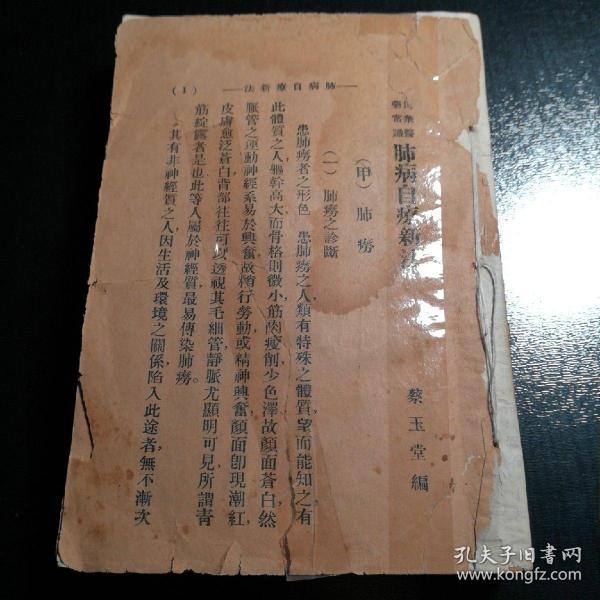 民眾醫藥常識
肺病自療新法
蔡玉堂編
(甲)肺癆
(一)肺癆之診斷
患肺癆者之形色 患肺癆之人類有特殊之體質,望而能知之有
此體質之人軀幹高大而骨格則微小,筋肉瘦削少色澤故顏面蒼白,然
脈管之運動神經系易於興奮故稍行勞動或精神興奮顏面卽現潮紅,
皮膚愈泛蒼白背部往往可以透視其毛細管靜脈尤顯明可見所謂青
筋綻露者是也此等人屬於神經質,最易傳染肺癆。
其有非神經質之人因生活及環境之關係陷入此途者,無不漸次
肺病自療新法
(1)
孔夫子旧书网
www.kongfz.com